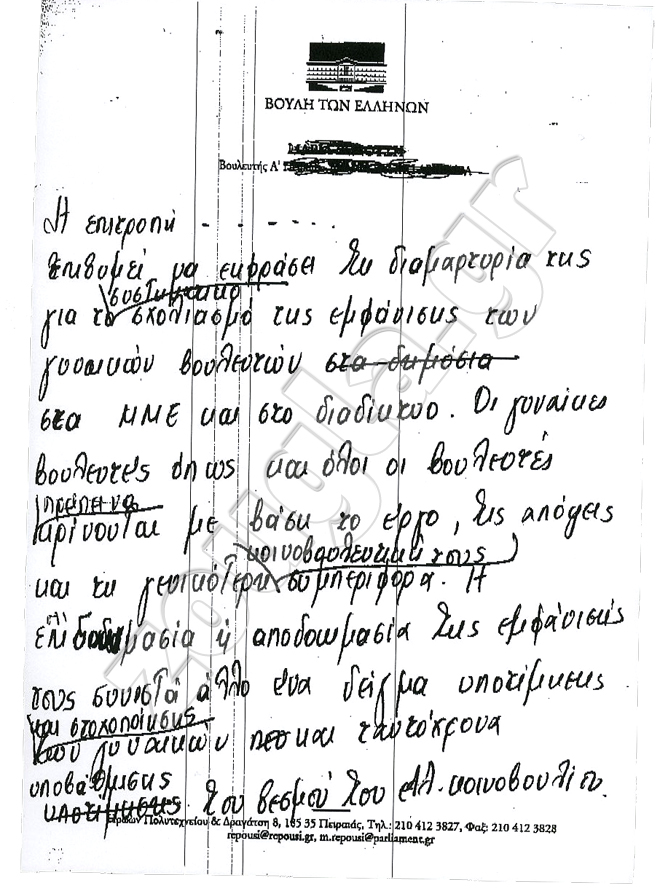 ΒΟΥΛΗ ΤΩΝ ΕΛΛΗΝΩΝ
Βουλευτής Α'
Η επιτροπή - - - - - -
επιθυμεί να εκφράσει τη διαμαρτυρία της
συστηματικό
για το σχολιασμό της εμφάνισης των
γυναικών βουλευτών στα δημόσια
στα ΜΜΕ και στο διαδίκτυο. Οι γυναίκες
βουλευτές όπως και όλοι οι βουλευτές
πρέπει να
κρίνονται με βάση το έργο, τις απόψεις
κοινοβουλευτική τους
και τη γενικότερη συμπεριφορά. Η
μασία ή αποδοκιμασία της εμφάνισής
τους συνιστά άλλο ένα δείγμα υποτίμησης
και στοχοποίησης
των γυναικών και ταυτόχρονα
υποβάθμισης
υποτίμησης του θεσμού του Ελλ. κοινοβουλίου.
Ηρώων Πολυτεχνείου & Δραγάτση 8, 185 35 Πειραιάς, Τηλ.: 210 412 3827, Φαξ: 210 412 3828
repousi@repousi.gr, m.repousi@parliament.gr
zougla.gr